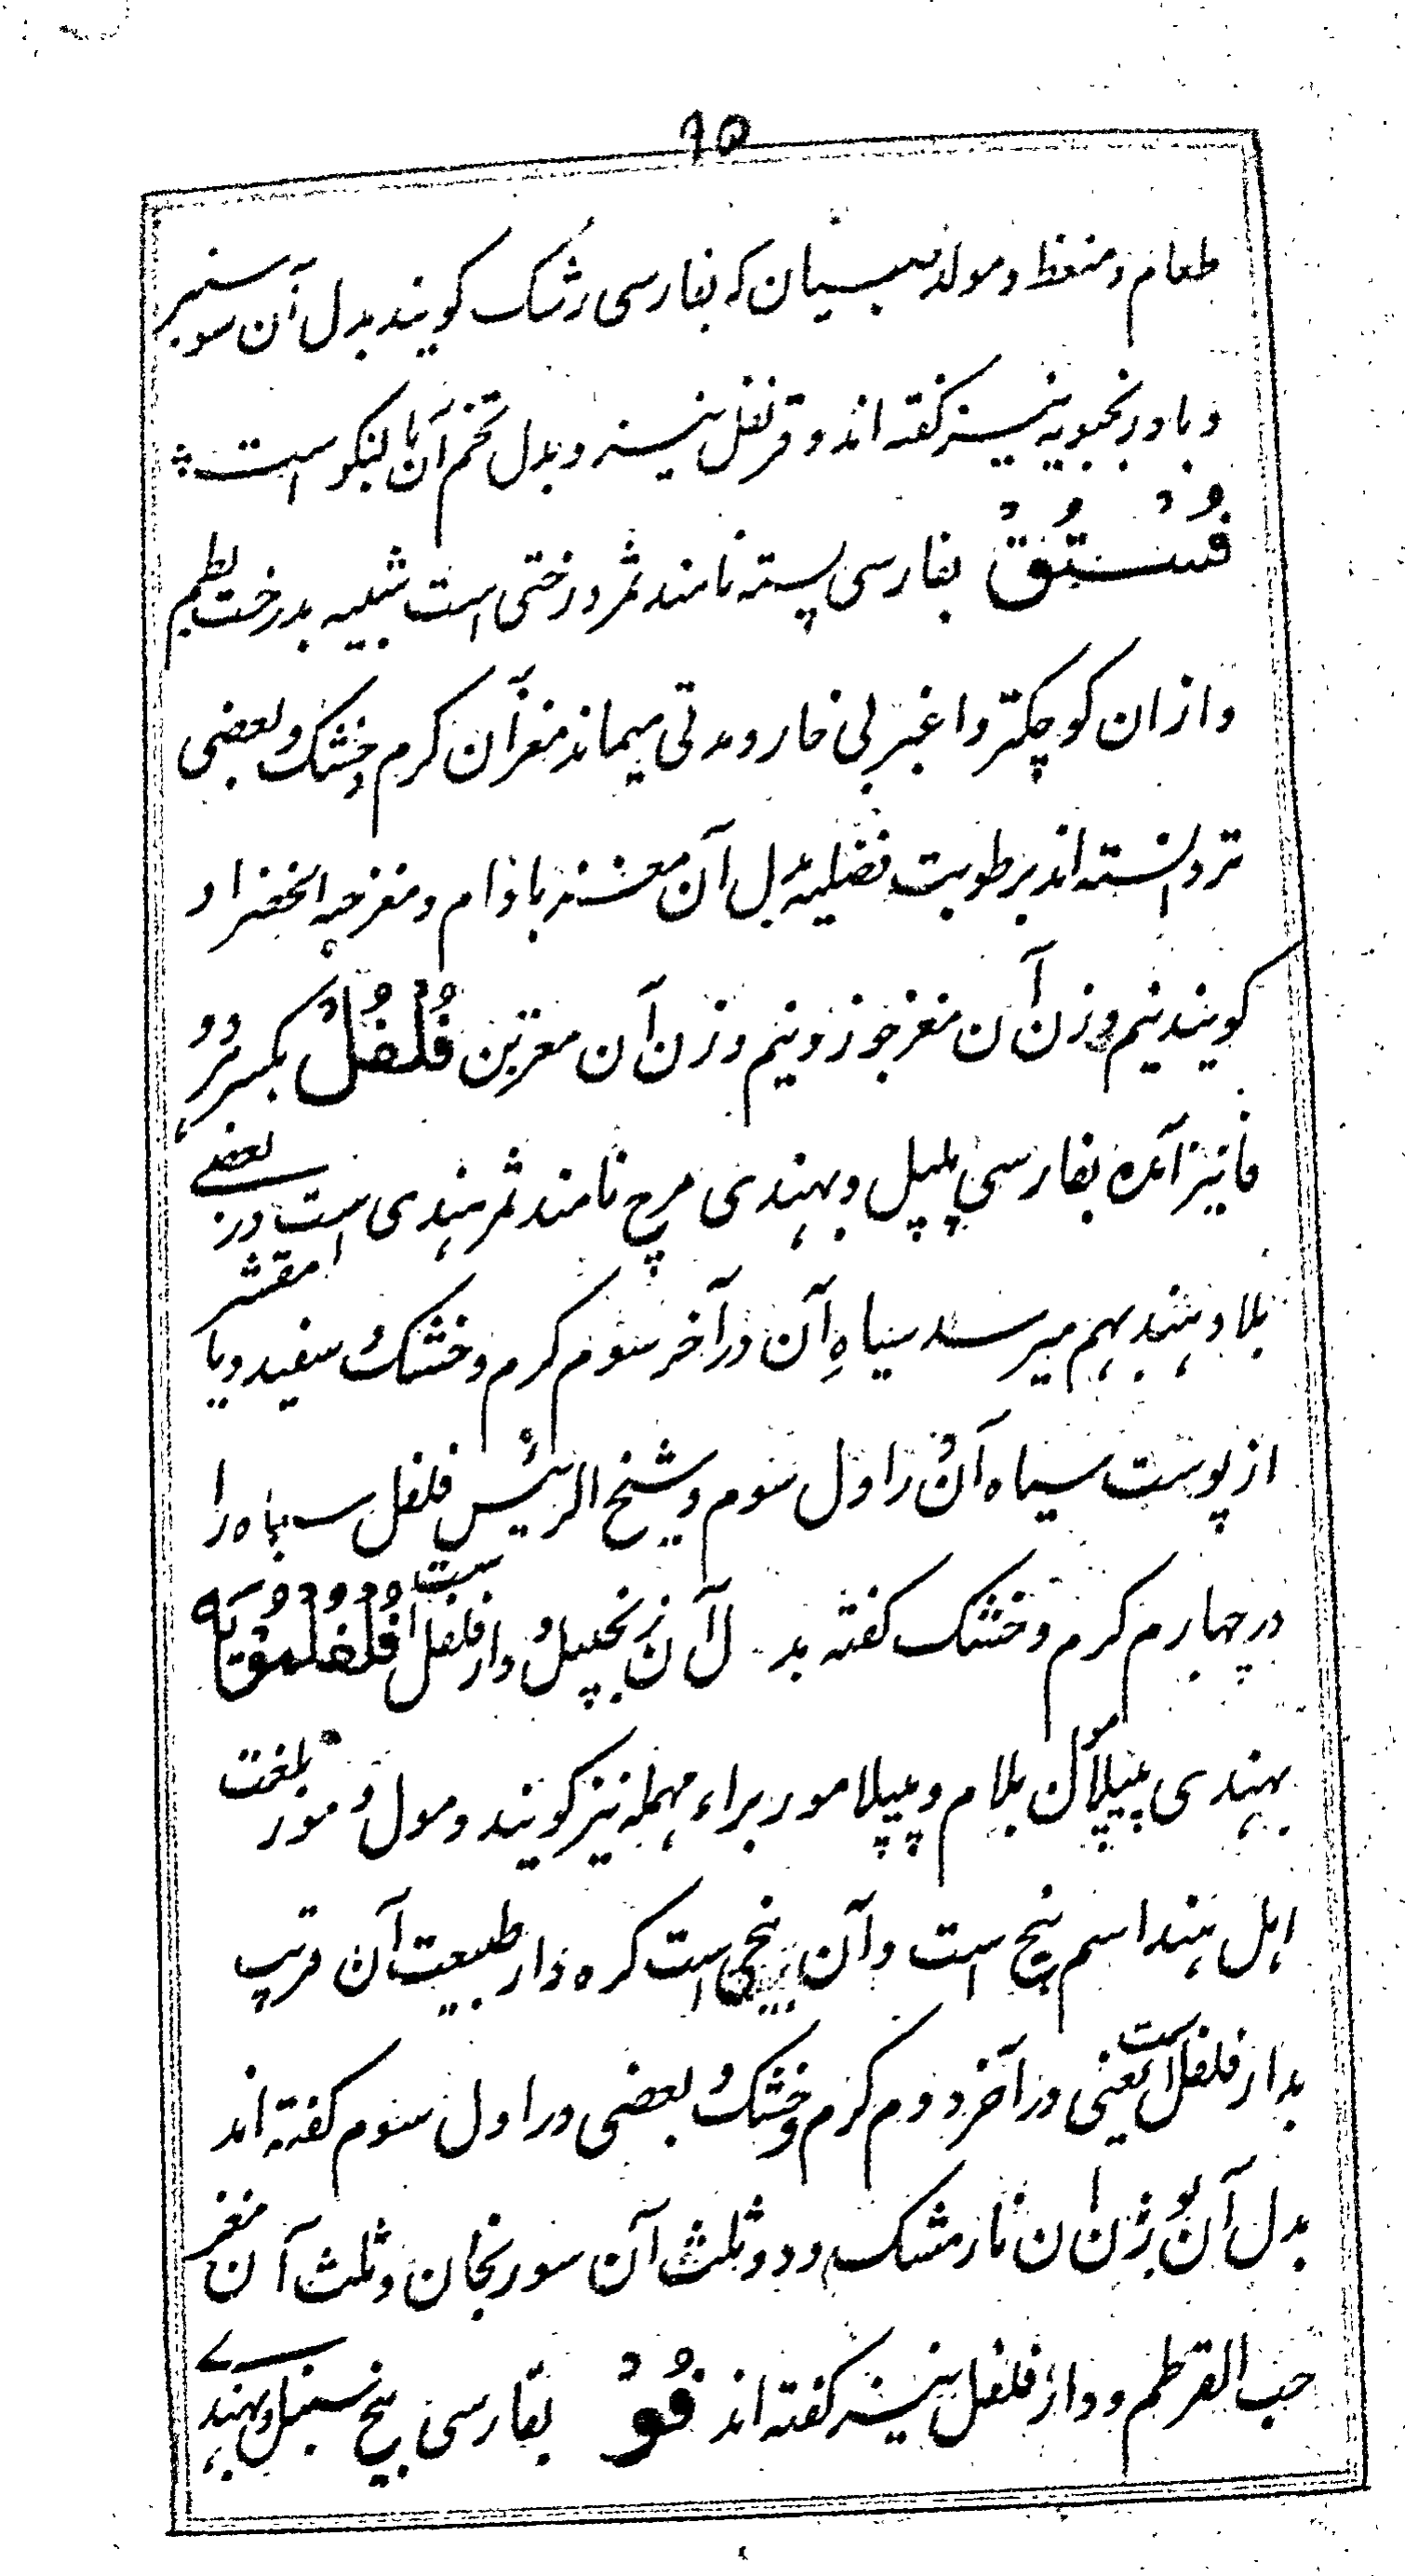 ۹۵
طعام و منعظ و مولد صیبان که بفارسی رشک کویند بدل آن سوسنبر
و بادرنجبویه نیز کفته اند و قرنفل نیز و بدل تخم آن بالنکو است
فُسْتُقْ بفارسی پسته نامند ثمر درختی است شبیه بدرخت بطم
و ازان کوچکتر و اغبر بی خار و مدتی میماند مغز آن کرم و خشک و بعضی
تر دانسته اند برطوبت فضلیه بدل آن مغز بادام و مغز حبه الخضرا و
کویند نیم وزن آن مغز جوز و نیم وزن آن مغز تین فُلْفُلْ بکسر دو
فا نیز آمده بفارسی پلپل و بهندی مرچ نامند ثمر هندی است در بعضے
بلاد هند بهم میرسد سیاهِ آن در آخر سوم کرم و خشک و سفید و یا مقشر
از پوست سیاه آن در اول سوم و شیخ الرئیس فلفل سیاه را
در چهارم کرم و خشک کفته بدل آن زنجبیل و دار فلفل است فُلْفُلْمُوْیَه
بهندی پیپلامول بلام و پیپلامور براء مهمله نیز کویند و مول و مور بلغت
اهل هند اسم بیخ است و آن بیخی است کره دار طبیعت آن قریب
بدار فلفل است یعنی در آخر دوم کرم و خشک و بعضی در اول سوم کفته اند
بدل آن بوزن آن نارمشک و دو ثلث آن سورنجان و ثلث آن مغز
حب القرطم و دار فلفل نیز کفته اند فُوْ بفارسی بیخ سنبل و بهندے